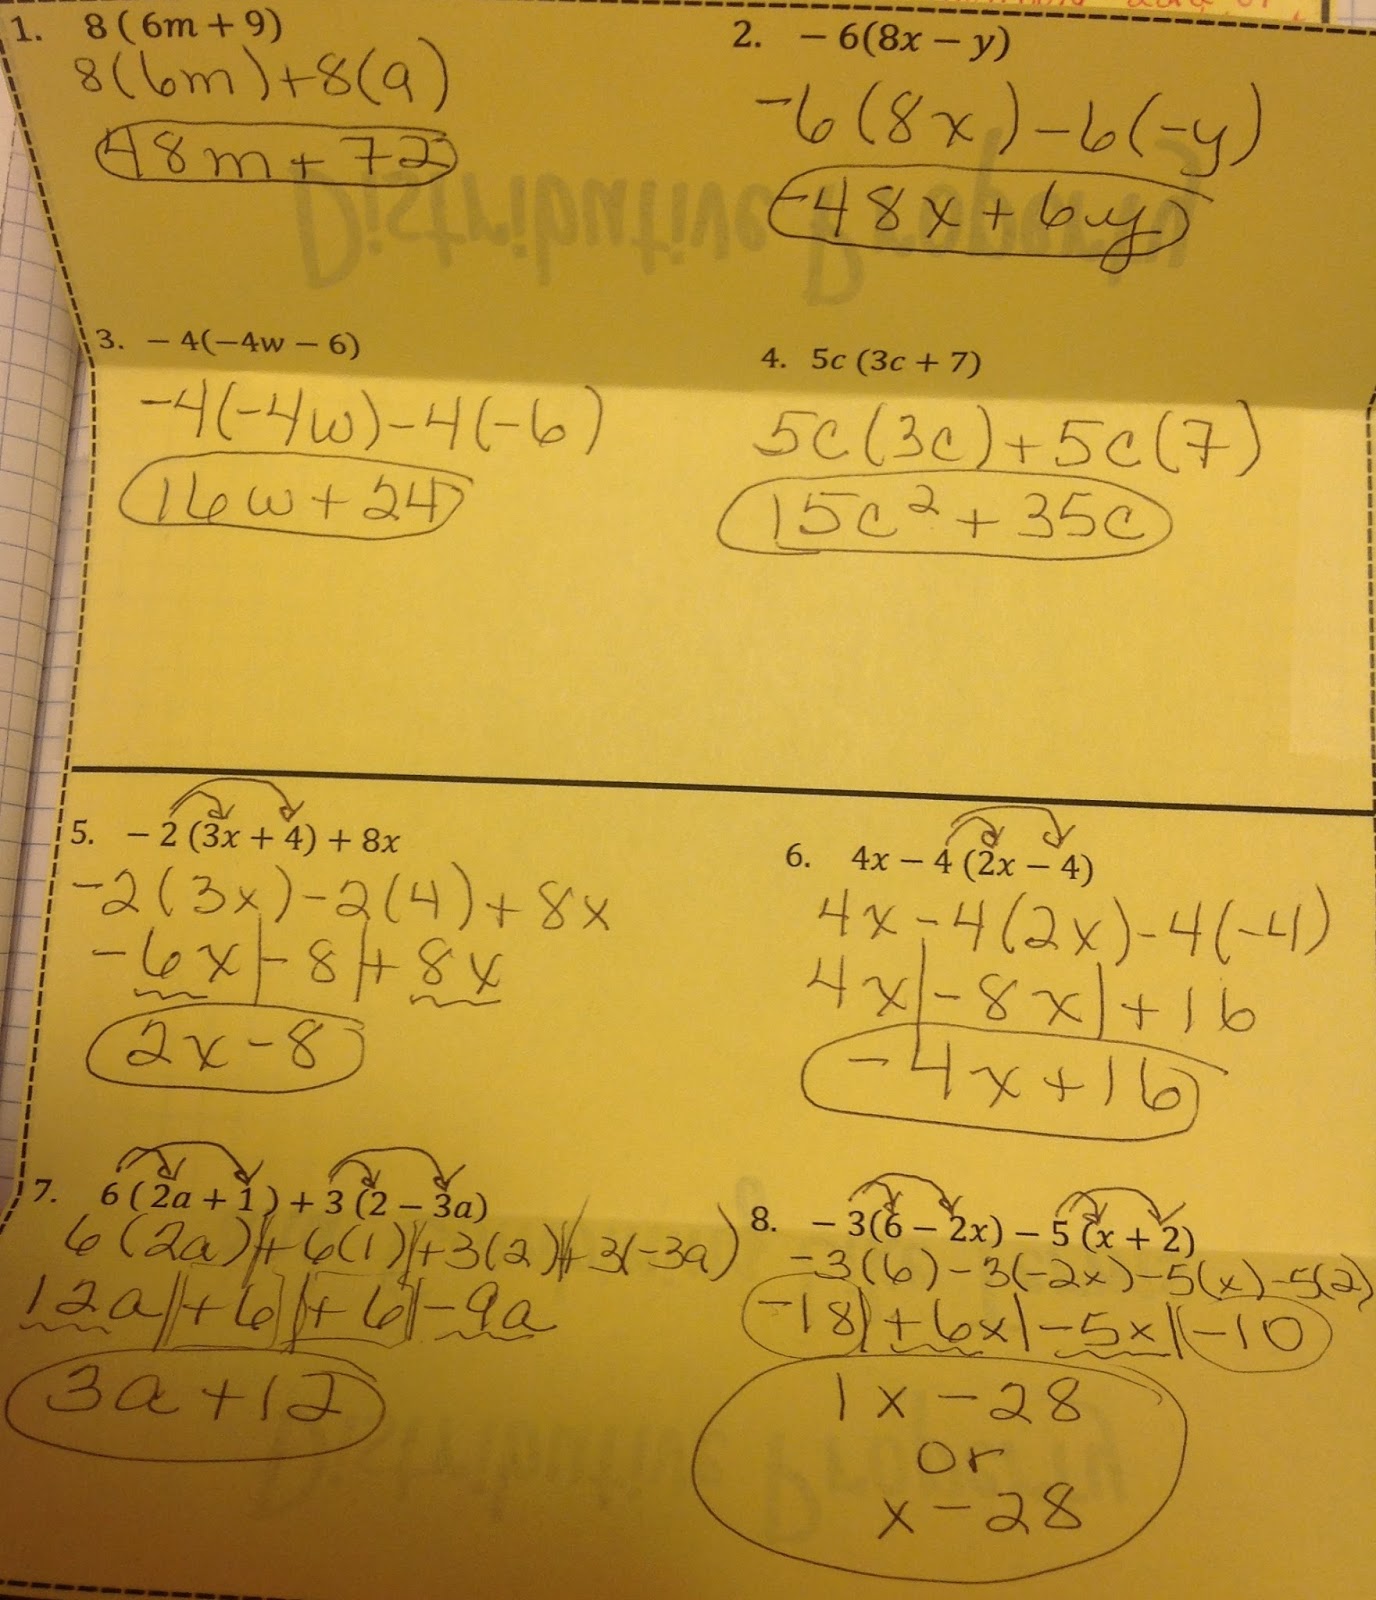 1. 8 ( 6m + 9)
8(6m)+8(9)
48m+72
2. − 6(8x − y)
-6(8x)-6(-y)
-48x+6y
Distributive Property
3. − 4(−4w − 6)
-4(-4w)-4(-6)
16w+24
4. 5c (3c + 7)
5c(3c)+5c(7)
15c²+35c
5. − 2 (3x + 4) + 8x
-2(3x)-2(4)+8x
-6x|-8|+8x
2x-8
6. 4x − 4 (2x − 4)
4x-4(2x)-4(-4)
4x|-8x|+16
-4x+16
7. 6 ( 2a + 1 ) + 3 (2 − 3a)
6(2a)+6(1)+3(2)+3(-3a)
12a|+6|+6|-9a
3a+12
8. − 3(6 − 2x) − 5 (x + 2)
-3(6)-3(-2x)-5(x)-5(2)
-18|+6x|-5x|-10
1x-28
or
x-28
Distributive Property